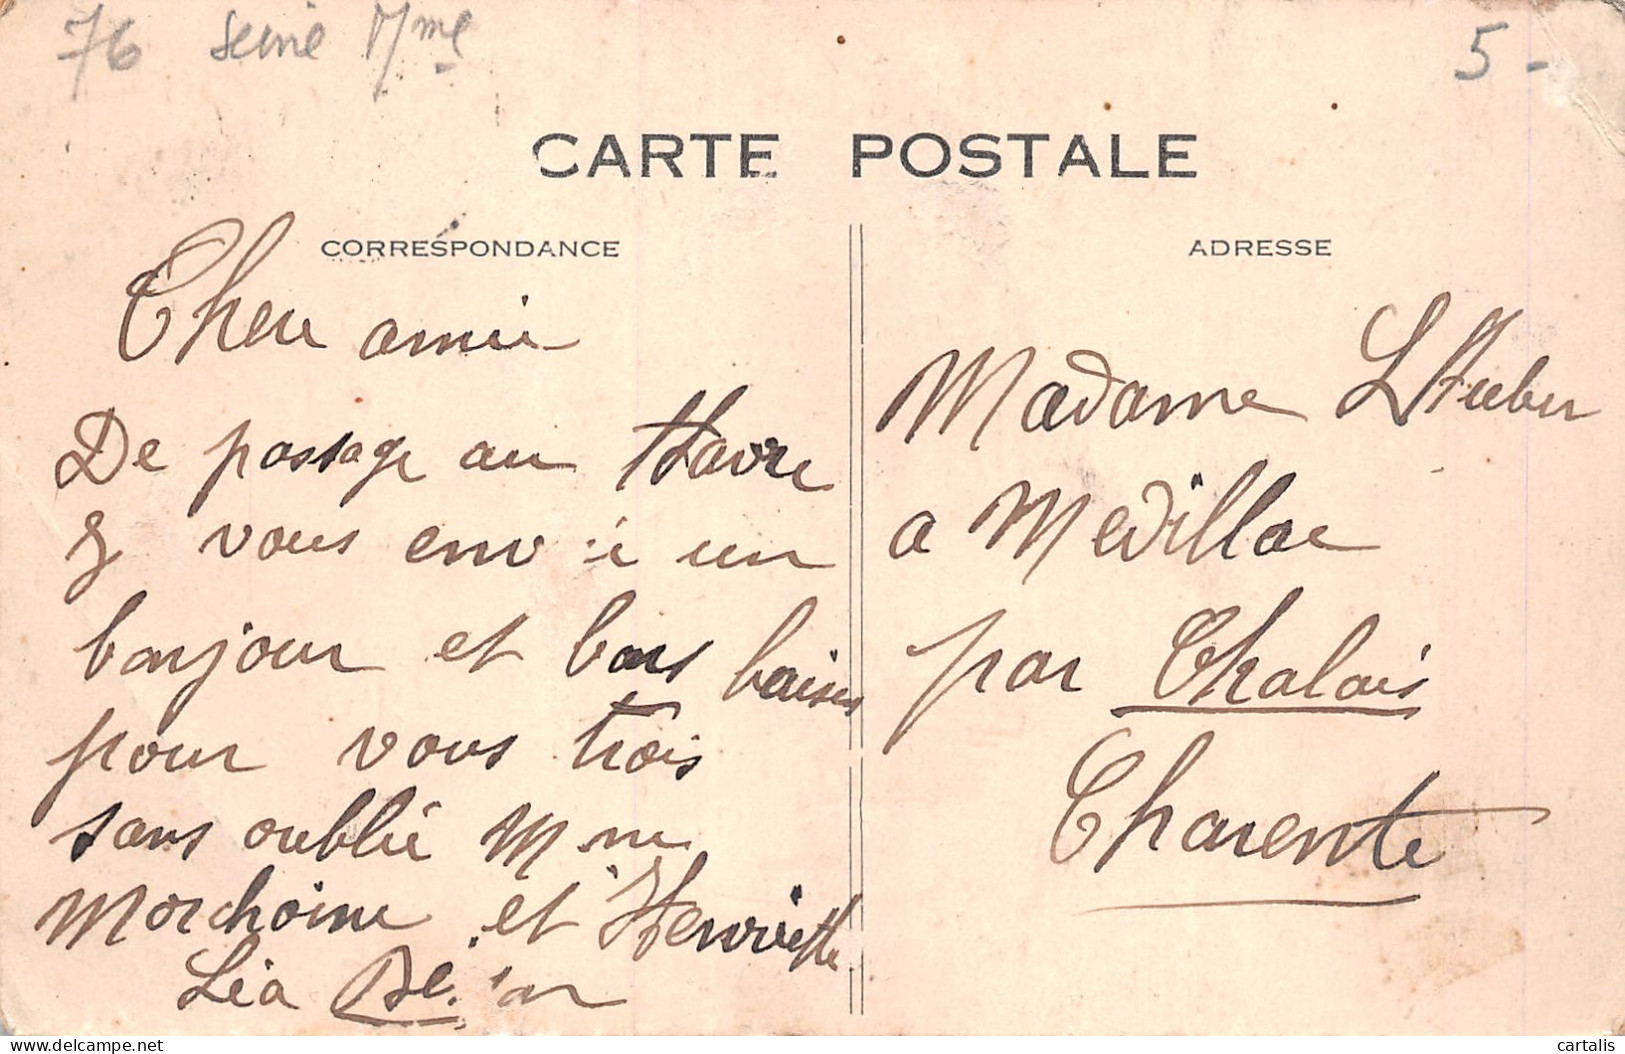 76 Seine Mme
5 -
CARTE POSTALE
CORRESPONDANCE
Chere amie
De passage au Havre
je vous envoie un
bonjour et bons baises
pour vous trois
sans oublié Mme
et Henriette
Léa
ADRESSE
Madame L Auber
a Medillac
par Chalais
Charente
cartalis
delcampe.net